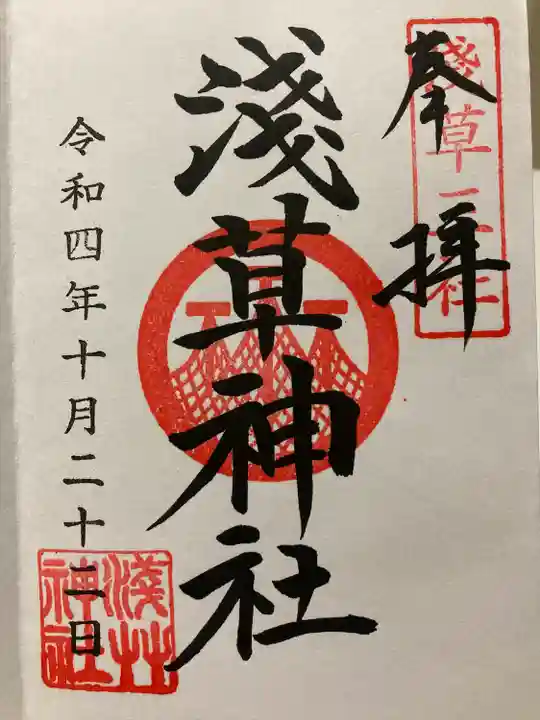 奉拝
淺草三社
淺草神社
令和四年十月二十二日
淺艸神社